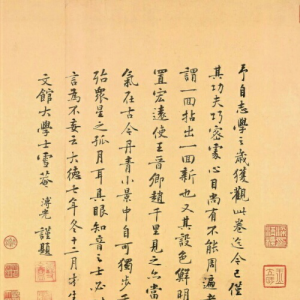 予自志學之歲獲觀此卷迄今已僅
其功夫巧密處心目尚有不能周遍者
謂一回拈出一回新也又其設色鮮明
置宏遠使王晉卿趙千里見之亦當
氣在古今丹青小景中自可獨步
殆眾星之孤月耳具眼知音之士必
言為不妄云大德七年冬十二月才生
文館大學士雪菴溥光謹題